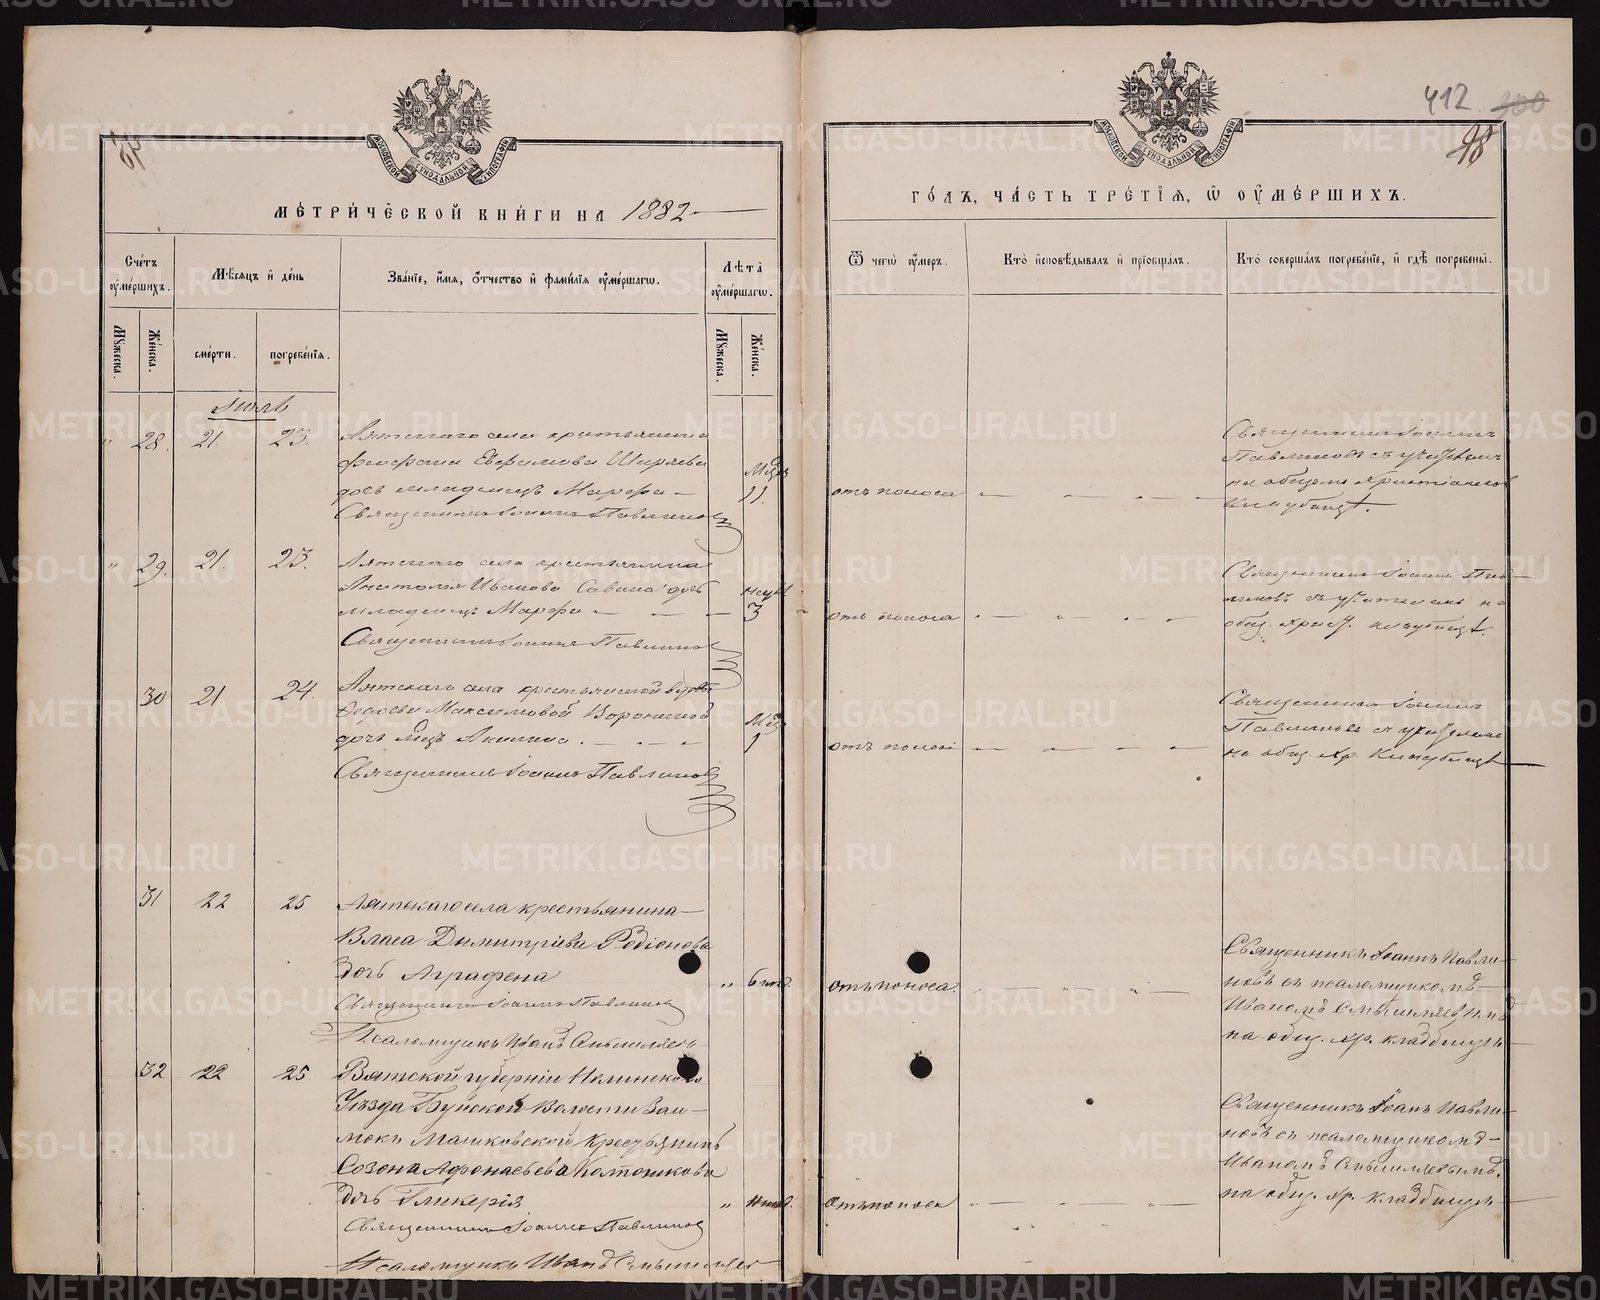 412
98
МОСКОВСКОЙ СУНОДАЛЬНОЙ ТИПОГРАФІИ
МОСКОВСКОЙ СУНОДАЛЬНОЙ ТИПОГРАФІИ
МЕТРИЧЕСКОЙ КНИГИ НА 1882
ГОДЪ, ЧАСТЬ ТРЕТІЯ, Ѿ ОУМЕРШИХЪ.
Счетъ оумершихъ.
Мужеска.
Женска.
Мѣсяцъ и день
смерти.
погребенія.
Званіе, имя, отчество и фамилія оумершагѡ.
Лѣта оумершагѡ.
Мужеска.
Женска.
Ѿ чегѡ оумеръ.
Кто исповѣдывалъ и пріобщалъ.
Кто совершалъ погребеніе, и гдѣ погребены.
Іюль
28 21. 23.
Аятскаго села крестьянина
Ширяева
дочь младенецъ Марфа
Священникъ Іоаннъ Павлинов
11.
отъ поноса
Священникъ Іоаннъ
Павлиновъ съ учителемъ
на общемъ христіанском
кладбищѣ.
29. 21. 23.
Аятскаго села крестьянина
Анатолія Иванова Савина дочь
младенецъ Марфа
Священникъ Іоаннъ Павлинов
3
отъ поноса
Священникъ Іоаннъ Пав-
линовъ съ учителемъ на
общ. христ. кладбищѣ.
30 21 24.
Аятскаго села крестьянской вдовы
Ѳедосьи Максимовой Ворониной
дочь млцъ Акилина
Священникъ Іоаннъ Павлиновъ
1
отъ поноса
Священникъ Іоаннъ
Павлиновъ съ учителемъ
на общ. хр. кладбищѣ
31 22 25
Аятскаго села крестьянина
Власа Димитріева Родіонова
дочь Аграфена
Священникъ Іоаннъ Павлинов
Псаломщикъ Иванъ Смышляевъ
6 нед.
отъ поноса.
Священникъ Іоаннъ Павли-
новъ съ псаломщикомъ
Иваномъ Смышляевымъ
на общ. хр. кладбищѣ
32 22 25
Вятской губерніи Нолинскаго
Уѣзда Буйской Волости
Машковской Крестьянинъ
Созона Афонасьева Колтошкова
дочь Гликерія
Священникъ Іоаннъ Павлинов
Псаломщикъ Иванъ Смышляев
отъ поноса
Священникъ Іоаннъ Павли-
новъ съ псаломщикомъ
Иваномъ Смышляевымъ
на общ. хр. кладбищѣ
METRIKI.GASO-URAL.RU